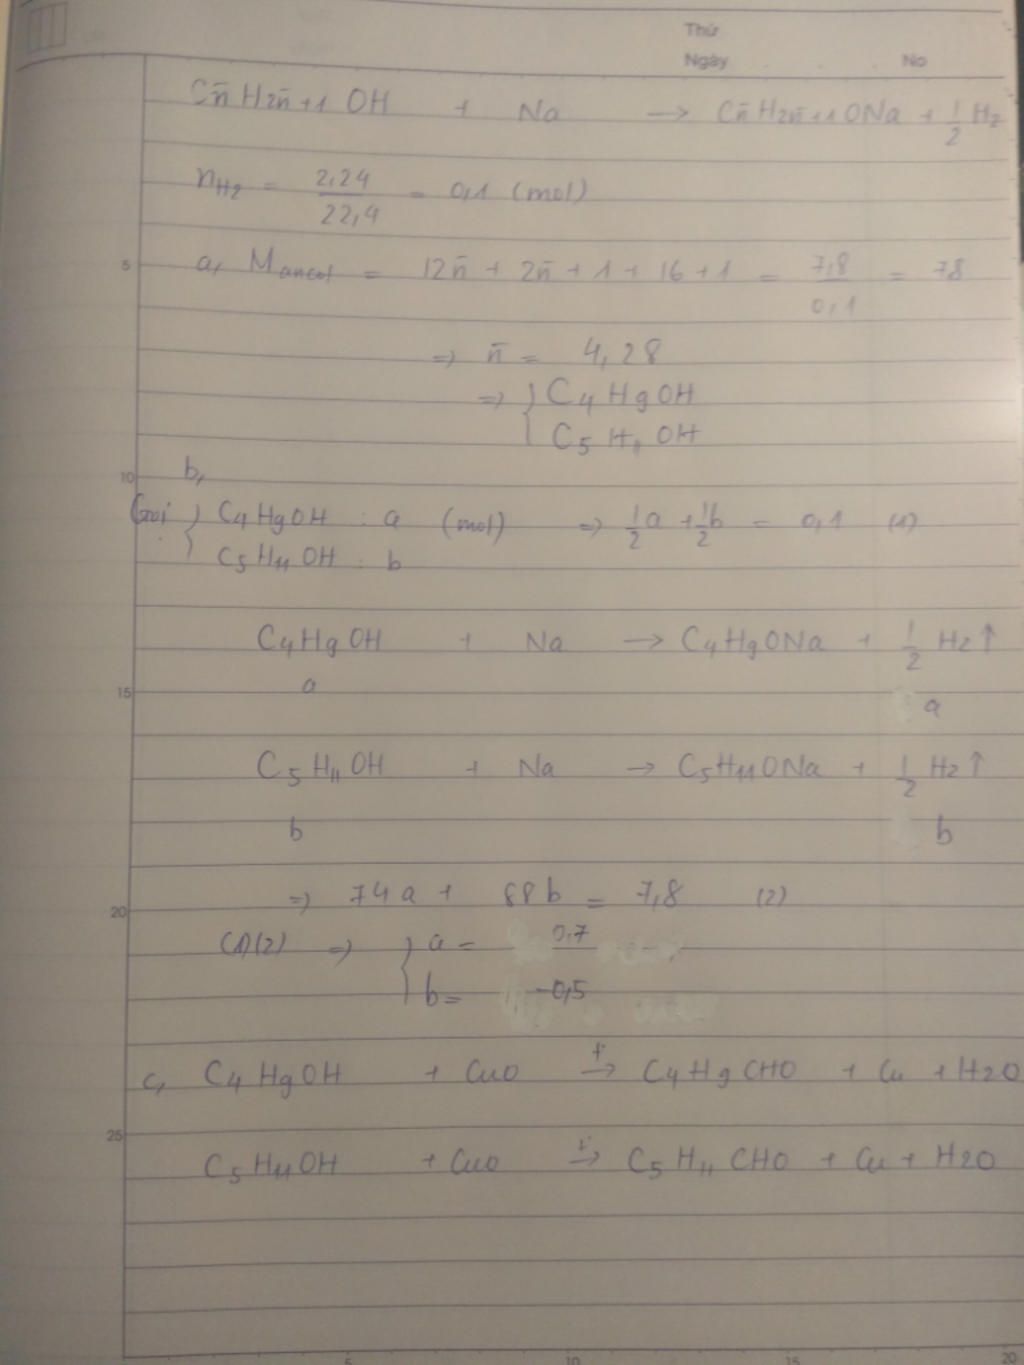 Thứ
Ngày No
Cn̄H2n̄+1 OH + Na → Cn̄H2n̄+1ONa + 1/2 H2
nH2 = 2,24/22,4 = 0,1 (mol)
5
a, Mancol = 12n̄ + 2n̄ + 1 + 16 + 1 = 7,8/0,1 = 78
=> n̄ = 4,28
=> { C4H9OH
C5H11OH
10
b,
Gọi { C4H9OH : a (mol) => 1/2a + 1/2b = 0,1 (1)
C5H11OH : b
C4H9OH + Na → C4H9ONa + 1/2 H2↑
15
a a
C5H11OH + Na → C5H11ONa + 1/2 H2↑
b b
=> 74a + 88b = 7,8 (2)
20
(1)(2) => { a = 0,7
b = -0,5
c, C4H9OH + CuO t°→ C4H9CHO + Cu + H2O
25
C5H11OH + CuO t°→ C5H11CHO + Cu + H2O
5 10 15 20